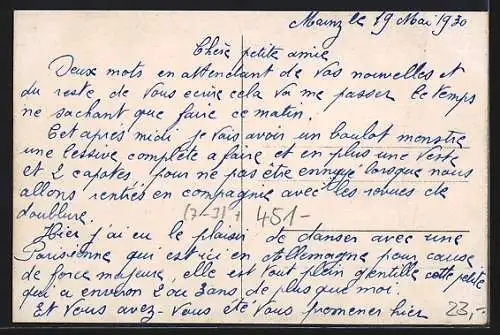 Mainz le 19 Mai 1930
Chère petite amie
Deux mots en attendant de vos nouvelles et
du reste de vous ecrire cela va me passer le temps
ne sachant que faire ce matin.
Cet après midi je vais avoir un boulot monstre
une lessive complète a faire et en plus une veste
et 2 capotes, pour ne pas être ennuyé lorsque nous
allons rentrés en compagnie avec les revues de
doublure.
(7-31) + 451-
Hier j'ai eu le plaisir de danser avec une
Parisienne qui est ici en Allemagne pour cause
de force majeure, elle est tout plein gentille cette petite
qui a environ 2 ou 3 ans de plus que moi.
Et vous avez-vous été vous promener hier
23,-